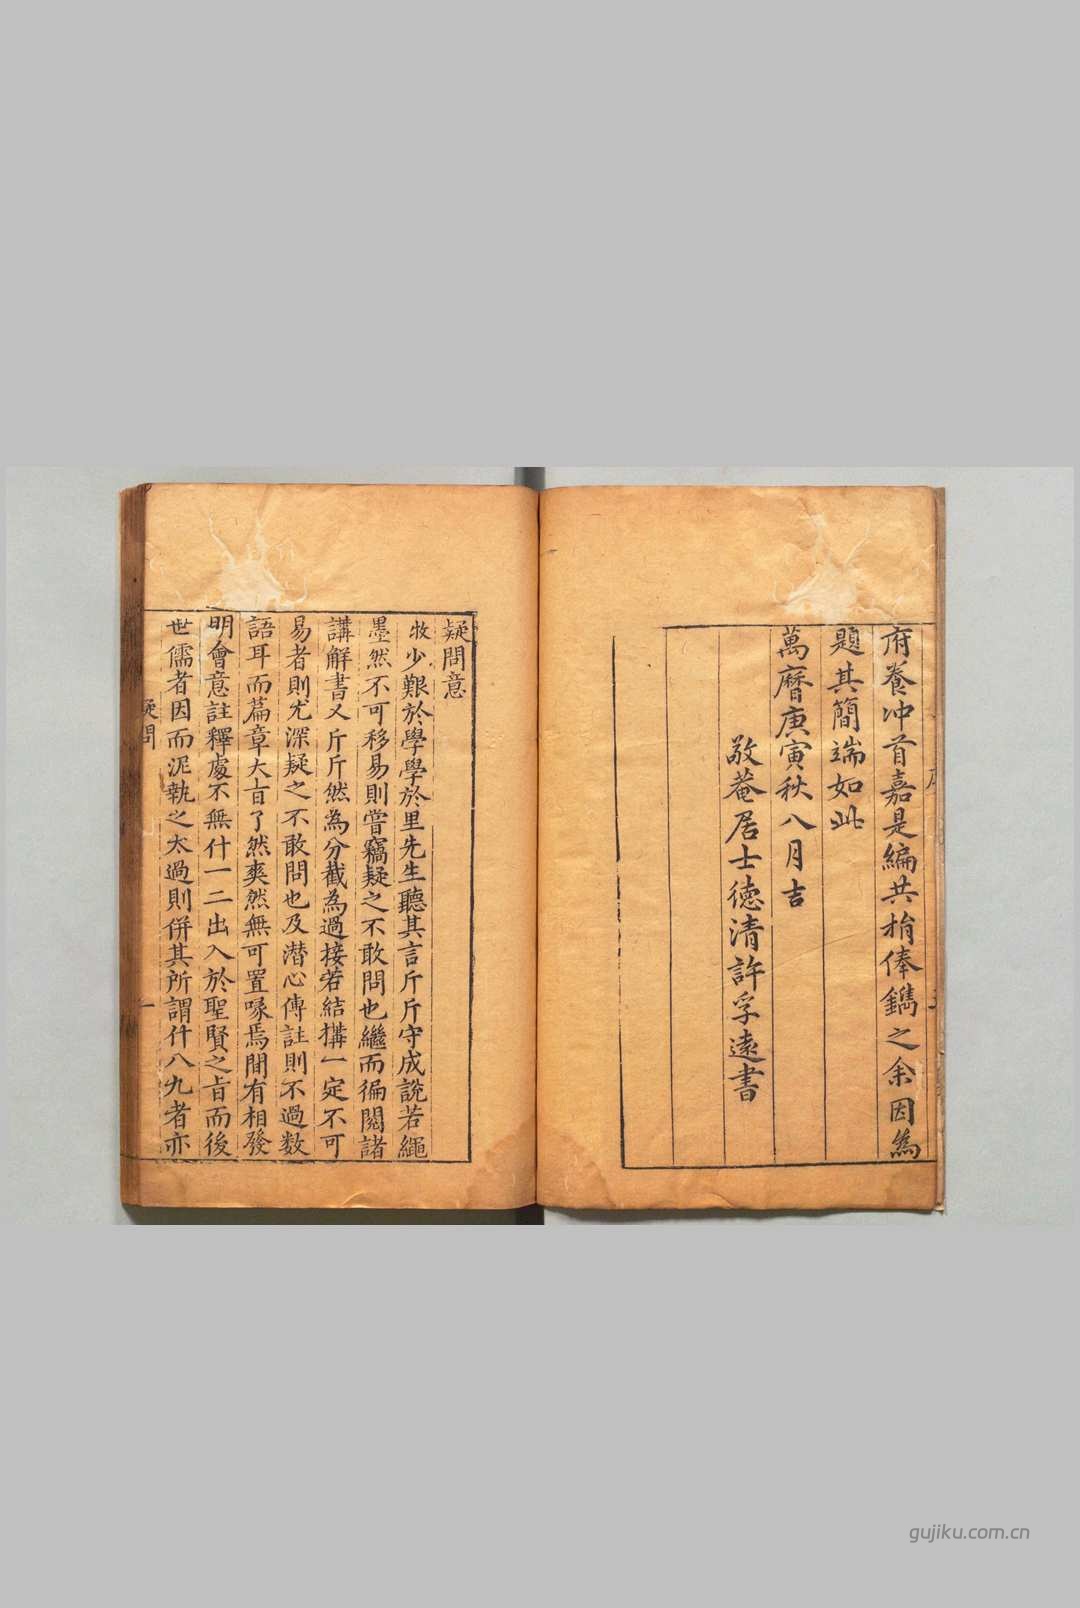 府養冲首嘉是編共捐俸鐫之余因為
題其簡端如此
萬曆庚寅秋八月吉
敬菴居士德清許孚遠書
疑問意
牧少艱於學學於里先生聽其言斤斤守成說若繩
墨然不可移易則嘗竊疑之不敢問也繼而徧閱諸
講解書又斤斤然為分截為過接若結搆一定不可
易者則尤深疑之不敢問也及潛心傳註則不過數
語耳而篇章大旨了然爽然無可置喙焉間有相發
明會意註釋處不無什一二出入於聖賢之旨而後
世儒者因而泥執之太過則併其所謂什八九者亦
疑問
一
gujiku.com.cn